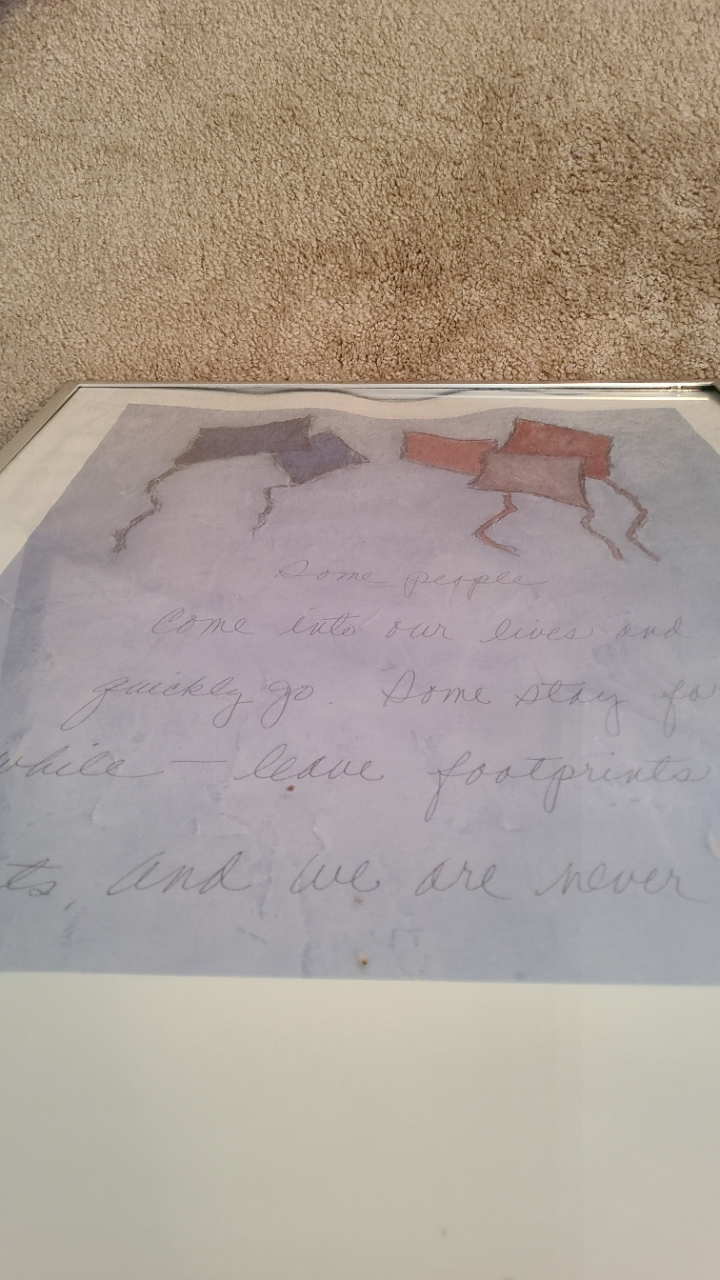 Some people
come into our lives and
quickly go. Some stay fo
while — leave footprints
ts, and we are never